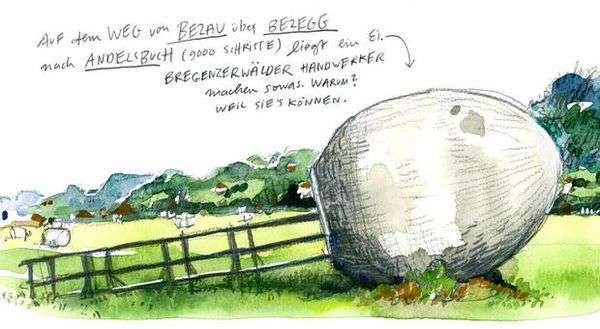 AUF dem WEG von BEZAU über BEZEGG
nach ANDELSBUCH (9000 SCHRITTE) liegt ein EI.
BREGENZERWÄLDER HANDWERKER
machen sowas. WARUM?
WEIL SIE'S KÖNNEN.